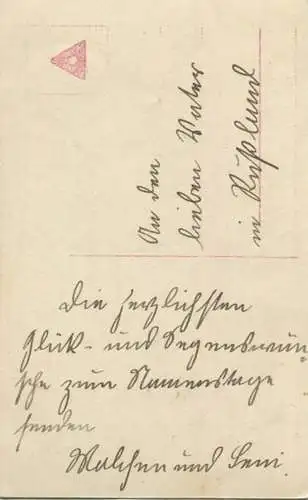 An den
lieben Vater
in Rußland
Die herzlichsten
Glück- und Segenswün-
sche zum Namenstage
senden
Malchen und Leni.